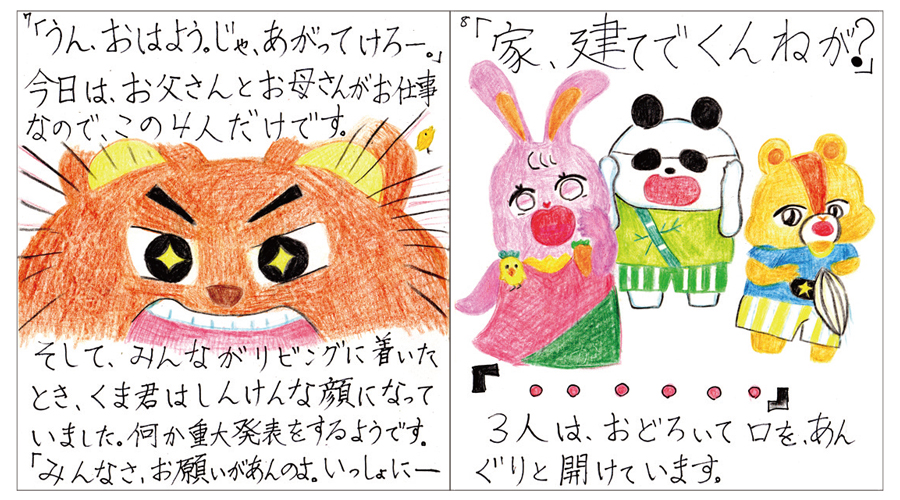 7
「うん、おはよう。じゃ、あがってけろー。」
今日は、お父さんとお母さんがお仕事
なので、この4人だけです。
そして、みんながリビングに着いた
とき、くま君はしんけんな顔になって
いました。何か重大発表をするようです。
「みんなさ、お願いがあんのよ。いっしょにー
8
「家、建ででくんねが?」
『••••••』
3人は、おどろいて口を、あん
ぐりと開けています。